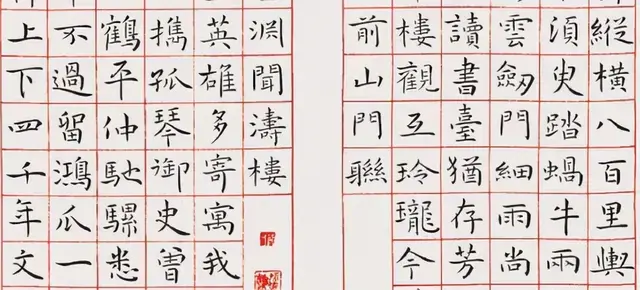 縱橫八百里輿
湏臾踏蝸牛兩
雲劔門細雨尚
讀書臺猶存芳
樓觀互玲瓏今
前山門聯
渊聞濤樓
英雄多寄寓我
携孤琴御史曾
鶴平仲馳騾悉
不過留鴻爪一
上下四千年文